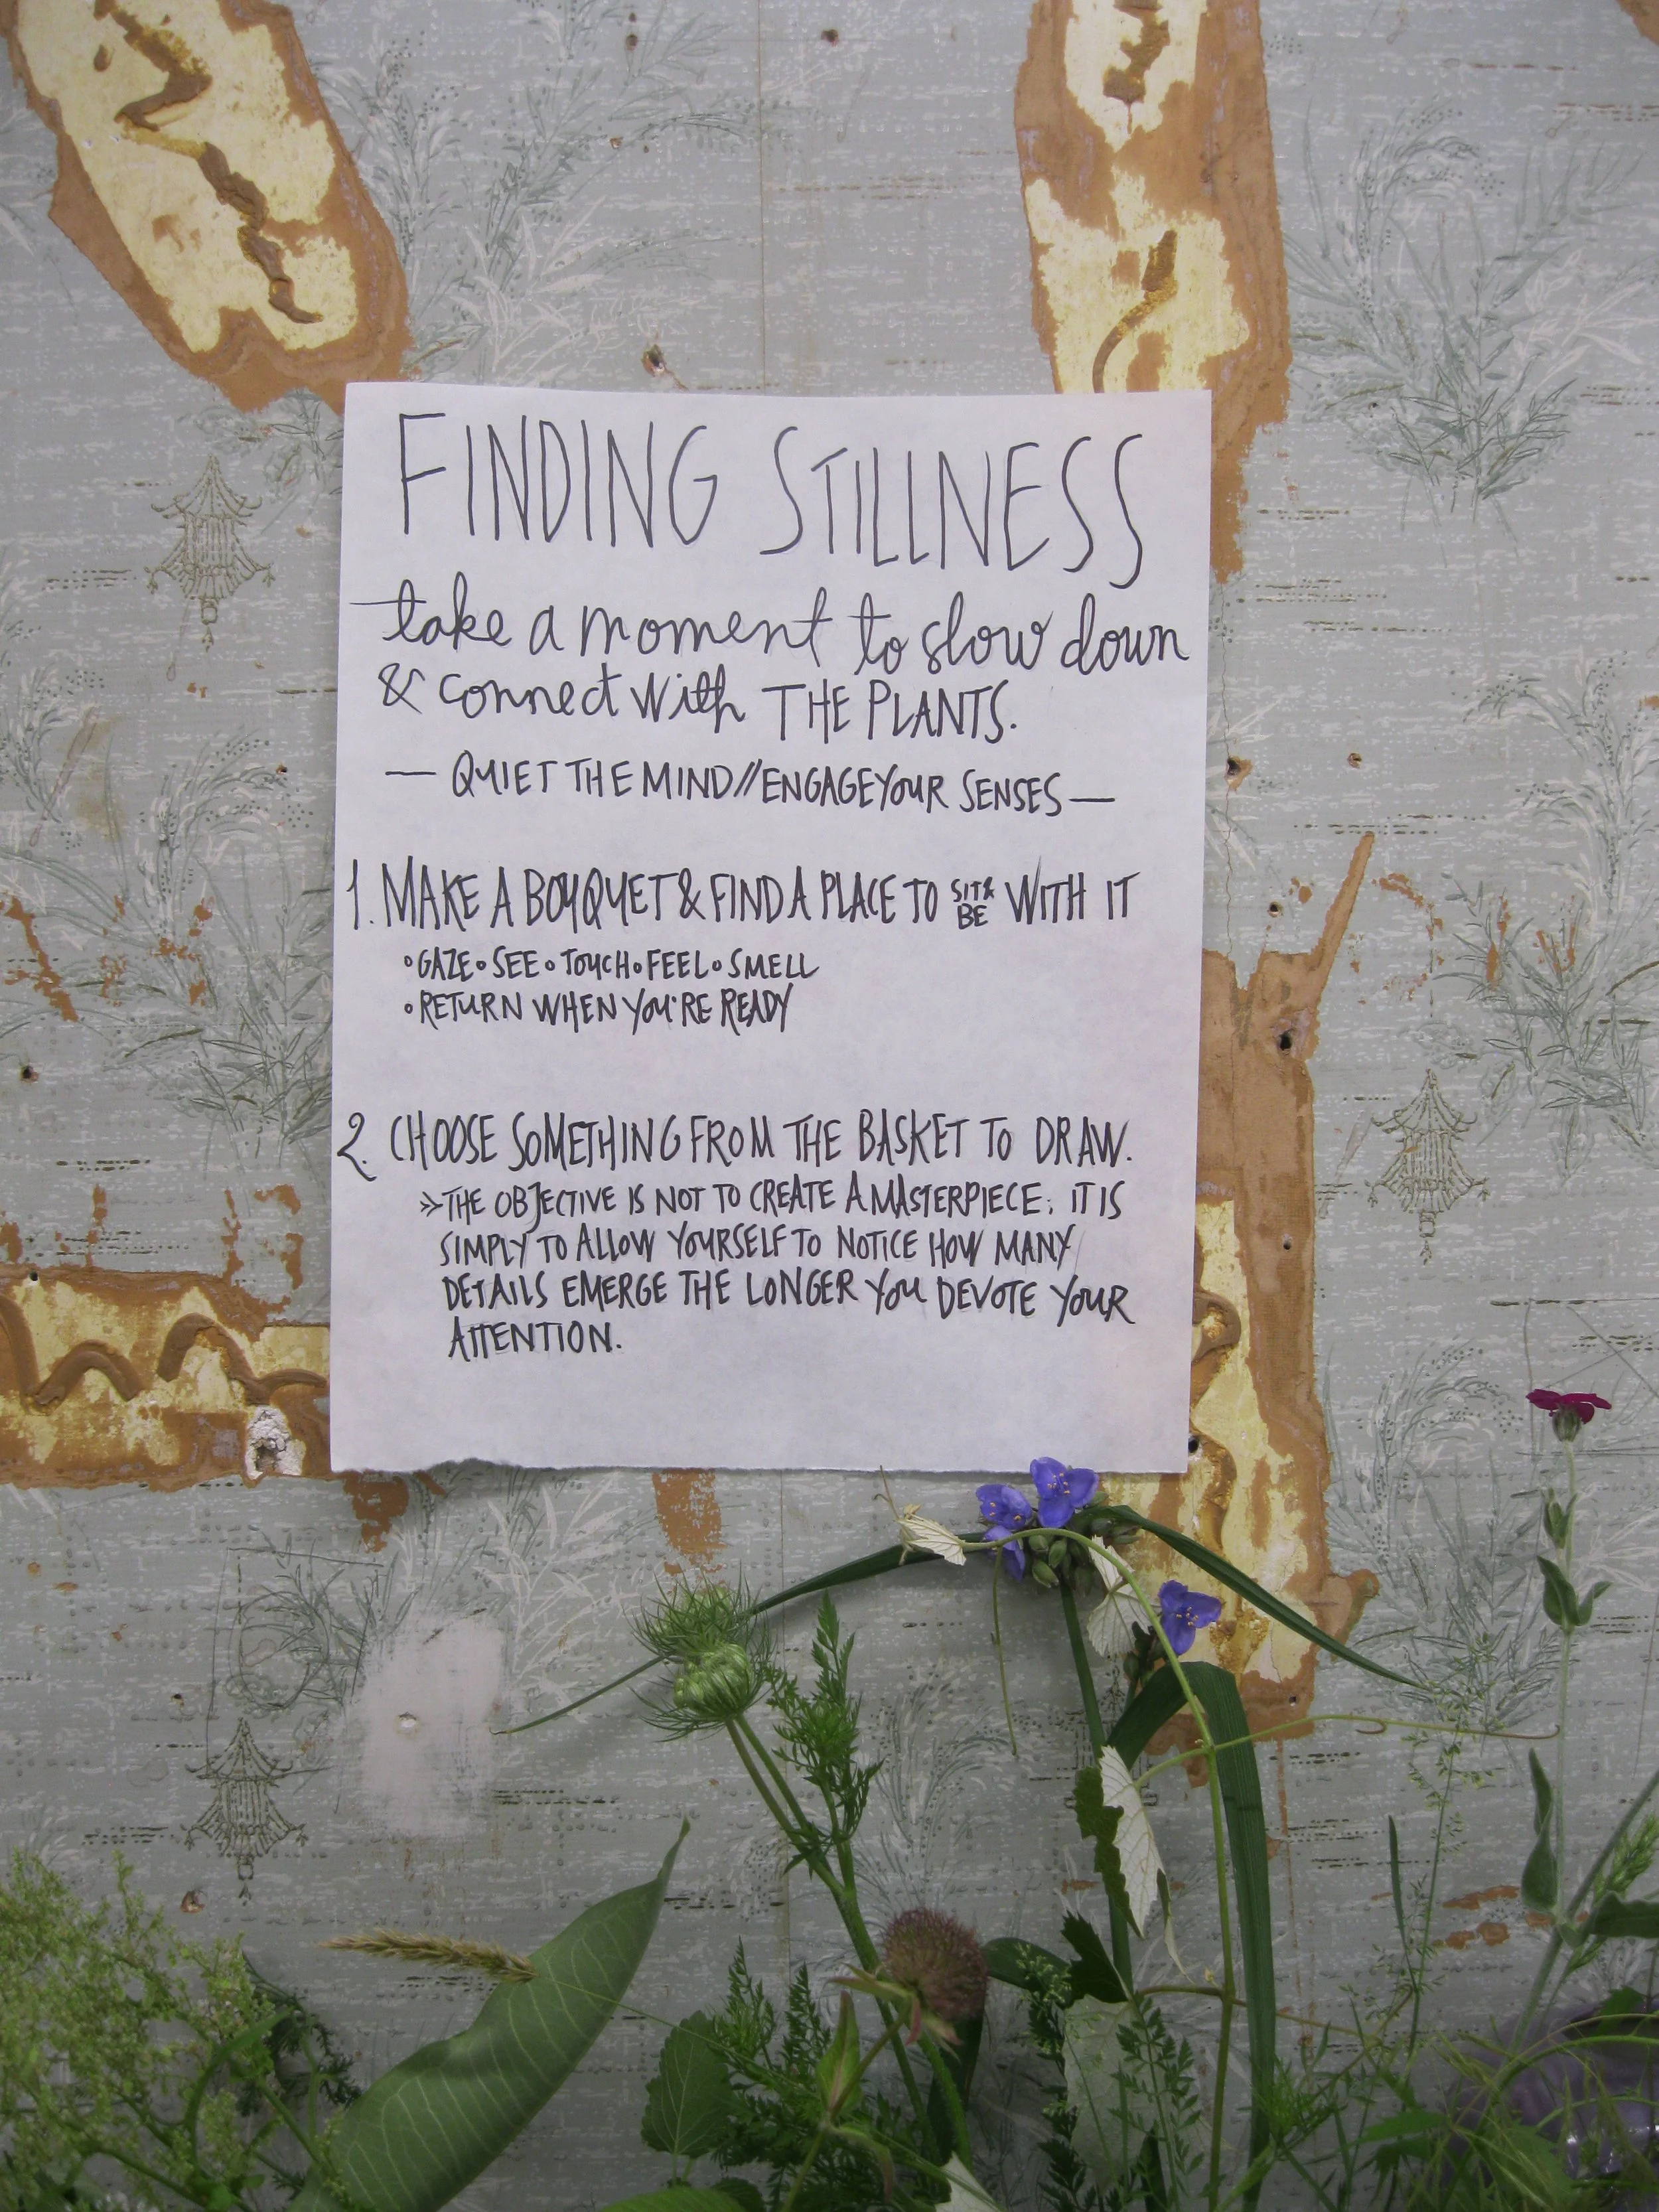 FINDING STILLNESS
take a moment to slow down
& connect with THE PLANTS.
— QUIET THE MIND//ENGAGE YOUR SENSES —
1. MAKE A BOUQUET & FIND A PLACE TO SIT & BE WITH IT
• GAZE • SEE • TOUCH • FEEL • SMELL
• RETURN WHEN YOU'RE READY
2. CHOOSE SOMETHING FROM THE BASKET TO DRAW.
» THE OBJECTIVE IS NOT TO CREATE A MASTERPIECE; IT IS
SIMPLY TO ALLOW YOURSELF TO NOTICE HOW MANY
DETAILS EMERGE THE LONGER YOU DEVOTE YOUR
ATTENTION.